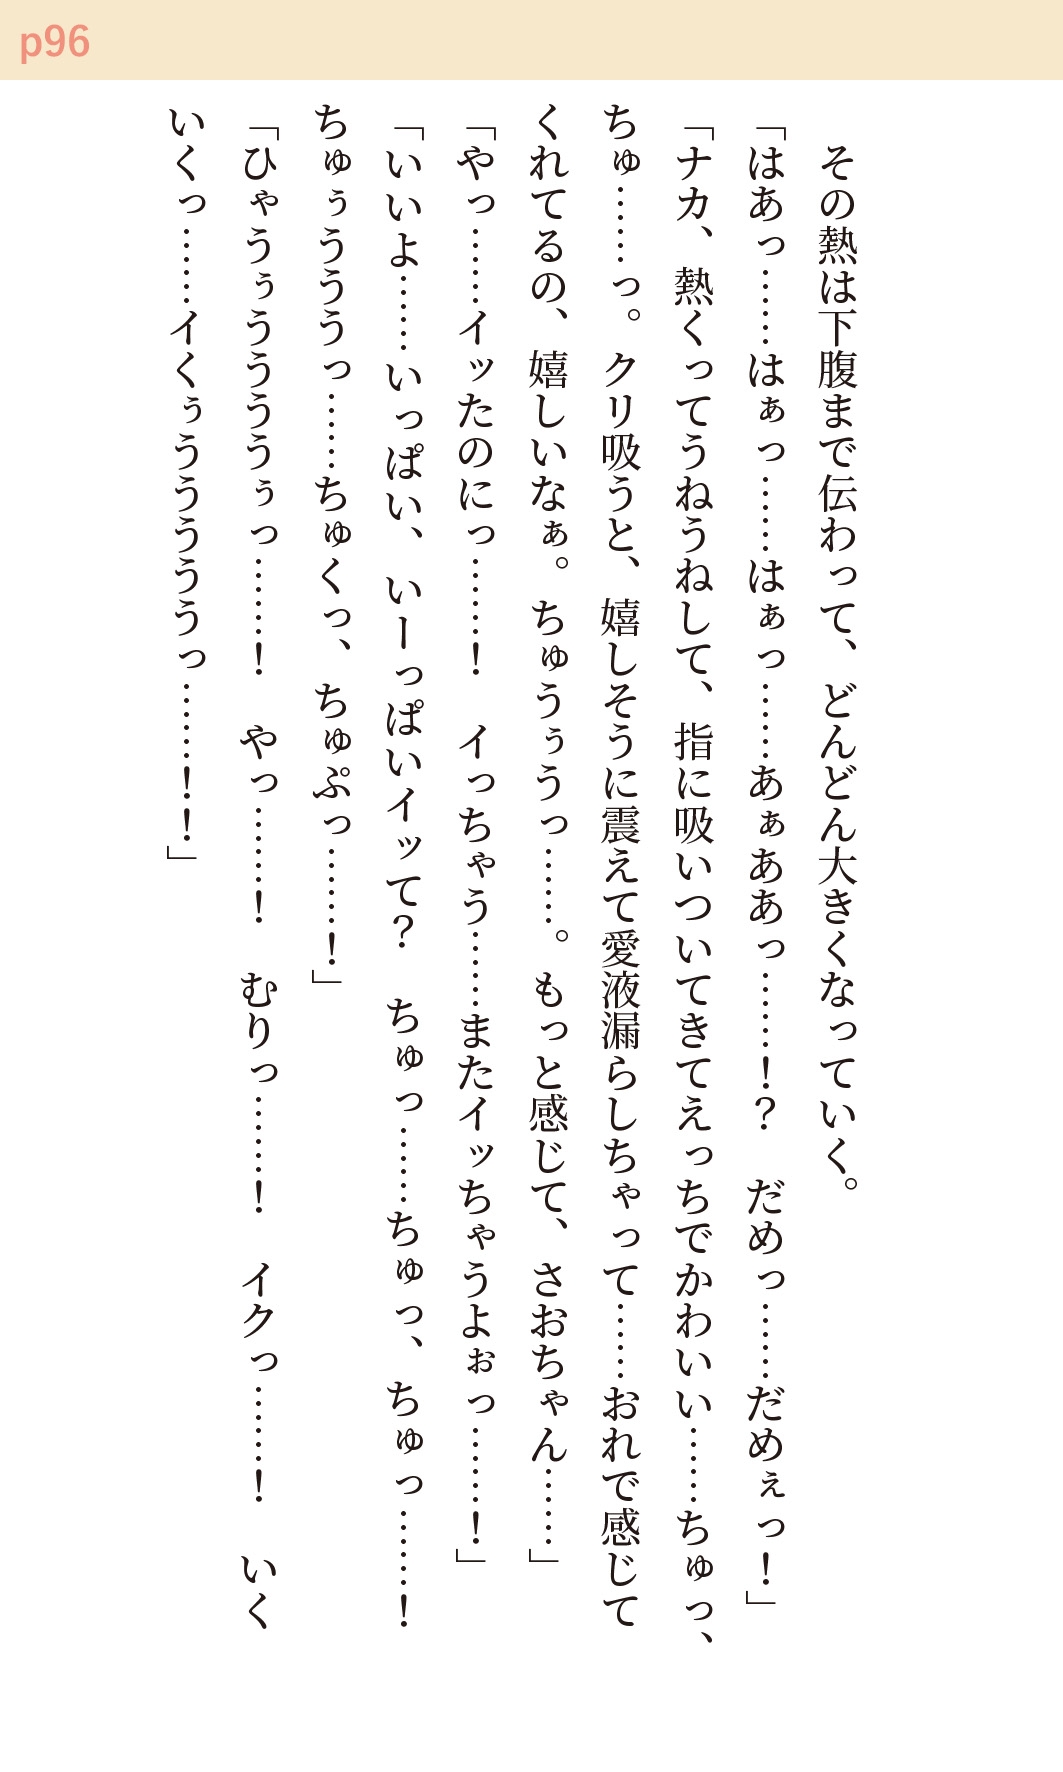 p96
　その熱は下腹まで伝わって、どんどん大きくなっていく。
「はあっ……はぁっ……はぁっ……あぁああっ……！？　だめっ……だめぇっ！」
「ナカ、熱くってうねうねして、指に吸いついてきてえっちでかわいい……ちゅっ、
ちゅ……っ。クリ吸うと、嬉しそうに震えて愛液漏らしちゃって……おれで感じて
くれてるの、嬉しいなぁ。ちゅうぅうっ……。もっと感じて、さおちゃん……」
「やっ……イッたのにっ……！　イっちゃう……またイッちゃうよぉっ……！」
「いいよ……いっぱい、いーっぱいイッて？　ちゅっ……ちゅっ、ちゅっ……！
ちゅぅうううっ……ちゅくっ、ちゅぷっ……！」
「ひゃうぅううううぅっ……！　やっ……！　むりっ……！　イクっ……！　いく
いくっ……イくぅうううううっ……！！」